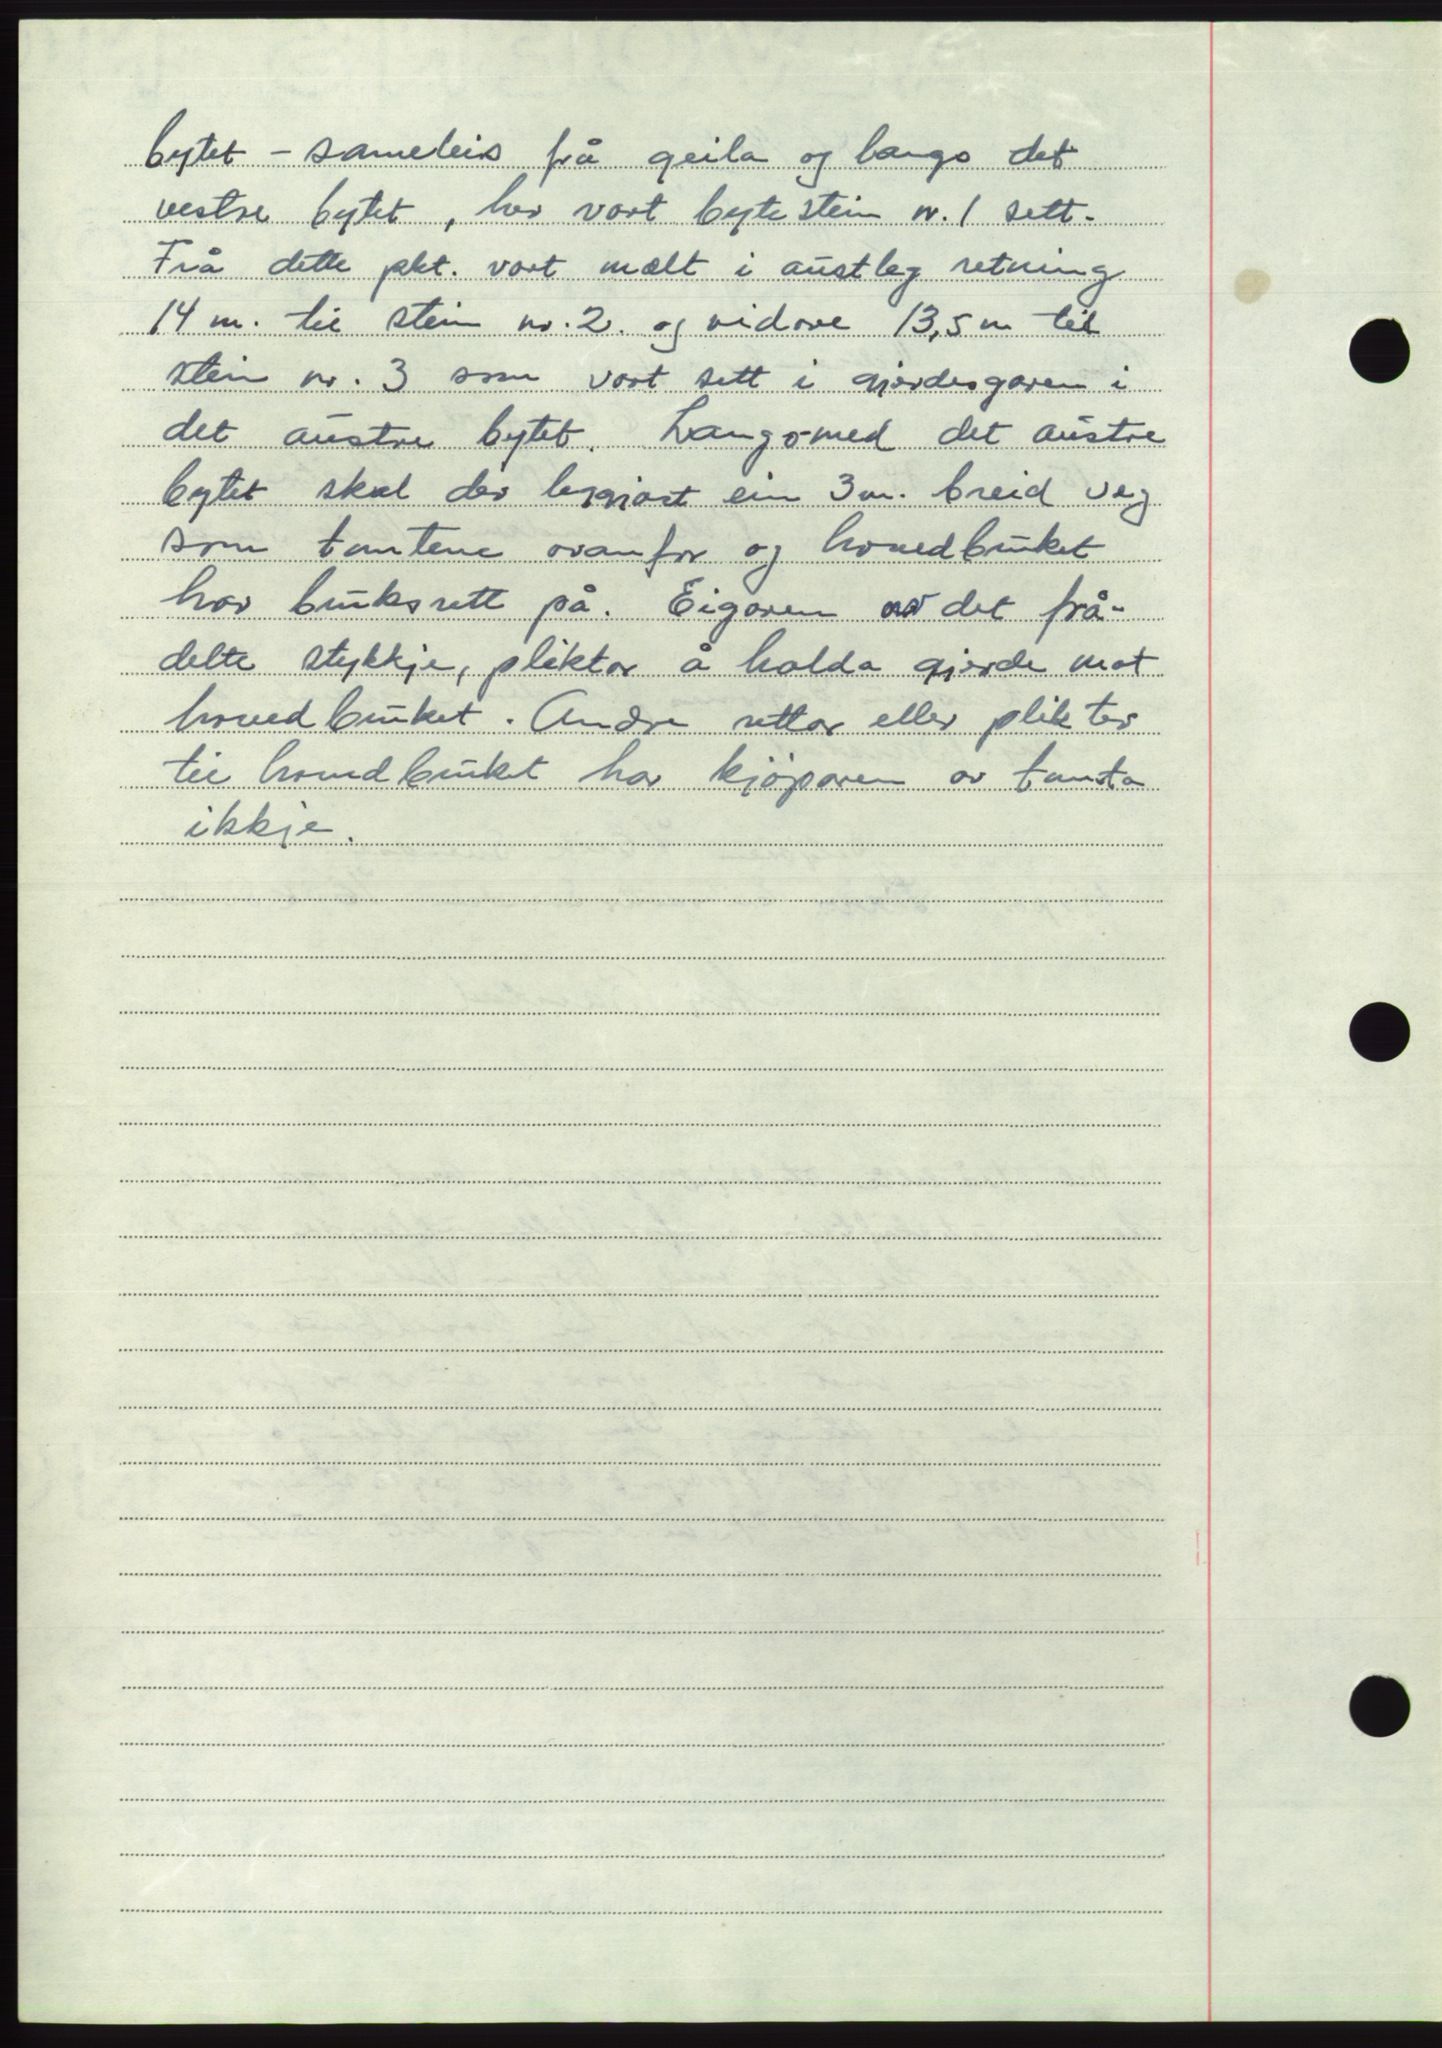 bytet – sameleis frå geila og langs det
vestre bytet, her vart bytestein nr. 1 sett.
Frå dette pkt. vart mælt i austleg retning
14 m. til stein nr. 2. og vidare 13,5 m til
stein nr. 3 som vart sett i gjerdesgaren i
det austre bytet. Langs med det austre
bytet skal der leggjast ein 3 m. breid veg
som tomtene ovanfor og hovedbruket
har bruksrett på. Eigaren av det frå-
delte stykkje, pliktar å halda gjerde mot
hovedbruket. Andre rettar eller plikter
til hovedbruket har kjöparen av tomta
ikkje.